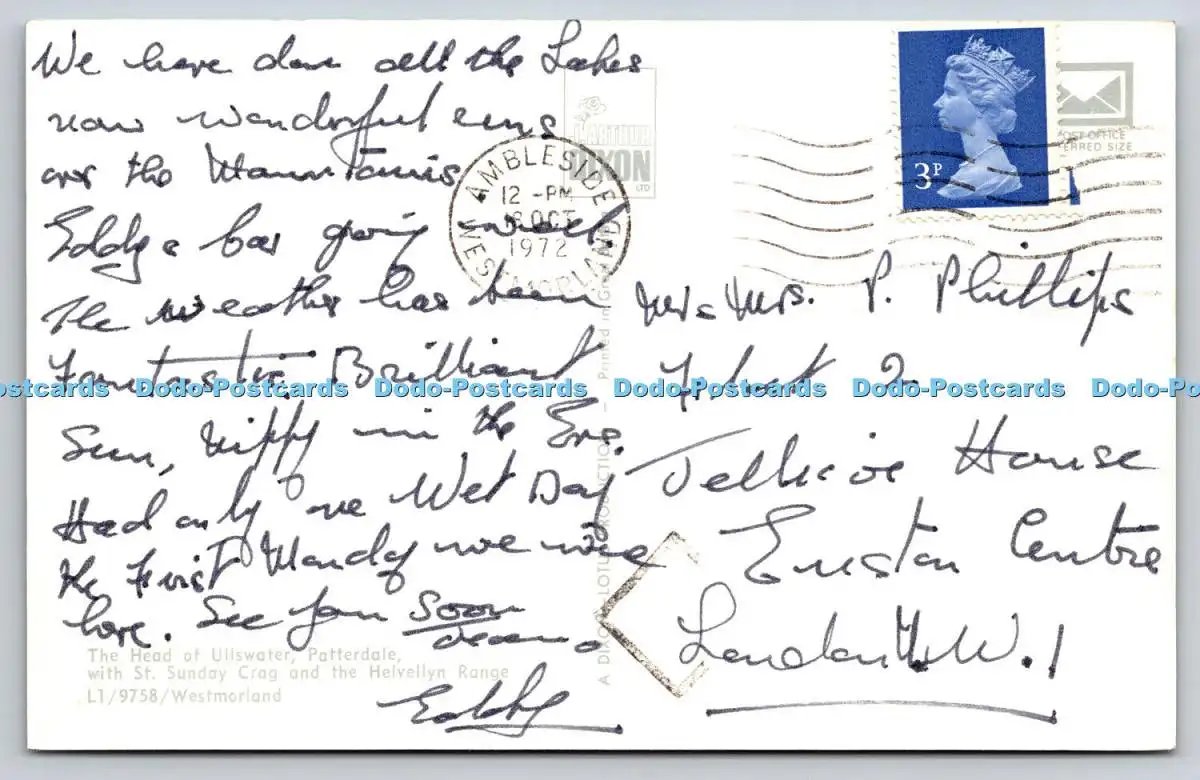 We have done all the Lakes
now wonderful runs
over the Mountains
Eddys bar going well,
The weather has been
Fantastic Brilliant
Sun, Nippy in the Evs.
Had only one Wet Day
the First Monday we were
here. See you soon
Eddy
The Head of Ullswater, Patterdale,
with St. Sunday Crag and the Helvellyn Range
L1/9758/Westmorland
ARTHUR
DIXON
LTD
A DIXON-LOTUS PRODUCTION - Printed in Gr
AMBLESIDE
12 -PM
8 OCT
1972
WESTMORLAND
3P
POST OFFICE
ERRED SIZE
Mr & Mrs. P. Phillips
Flat 2
House
Euston Centre
London N.W.1
Postcards Dodo-Postcards Dodo-Postcards Dodo-Postcards Dodo-Postcards Dodo-Po